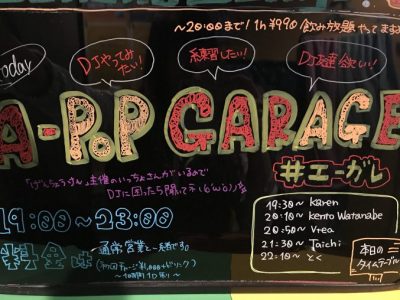 ~20:00まで! 1h ¥990 飲み放題やってます
Today
DJやってみたい!
練習したい!
DJ友達欲しい!
A-P.P GARAGE
#エーガレ
「げんちょうけん」主催のいっちょさんがいるので
DJに困ったら聞いて下
19:00~23:00
料金は
通常営業と一緒です。
(初回チャージ ¥1,000+1ドリンク)
19:30~ Karen
20:10~ kento Watanabe
20:50~ Vtea
21:30~ Taichi
22:10~ とく
本日のタイムテーブル